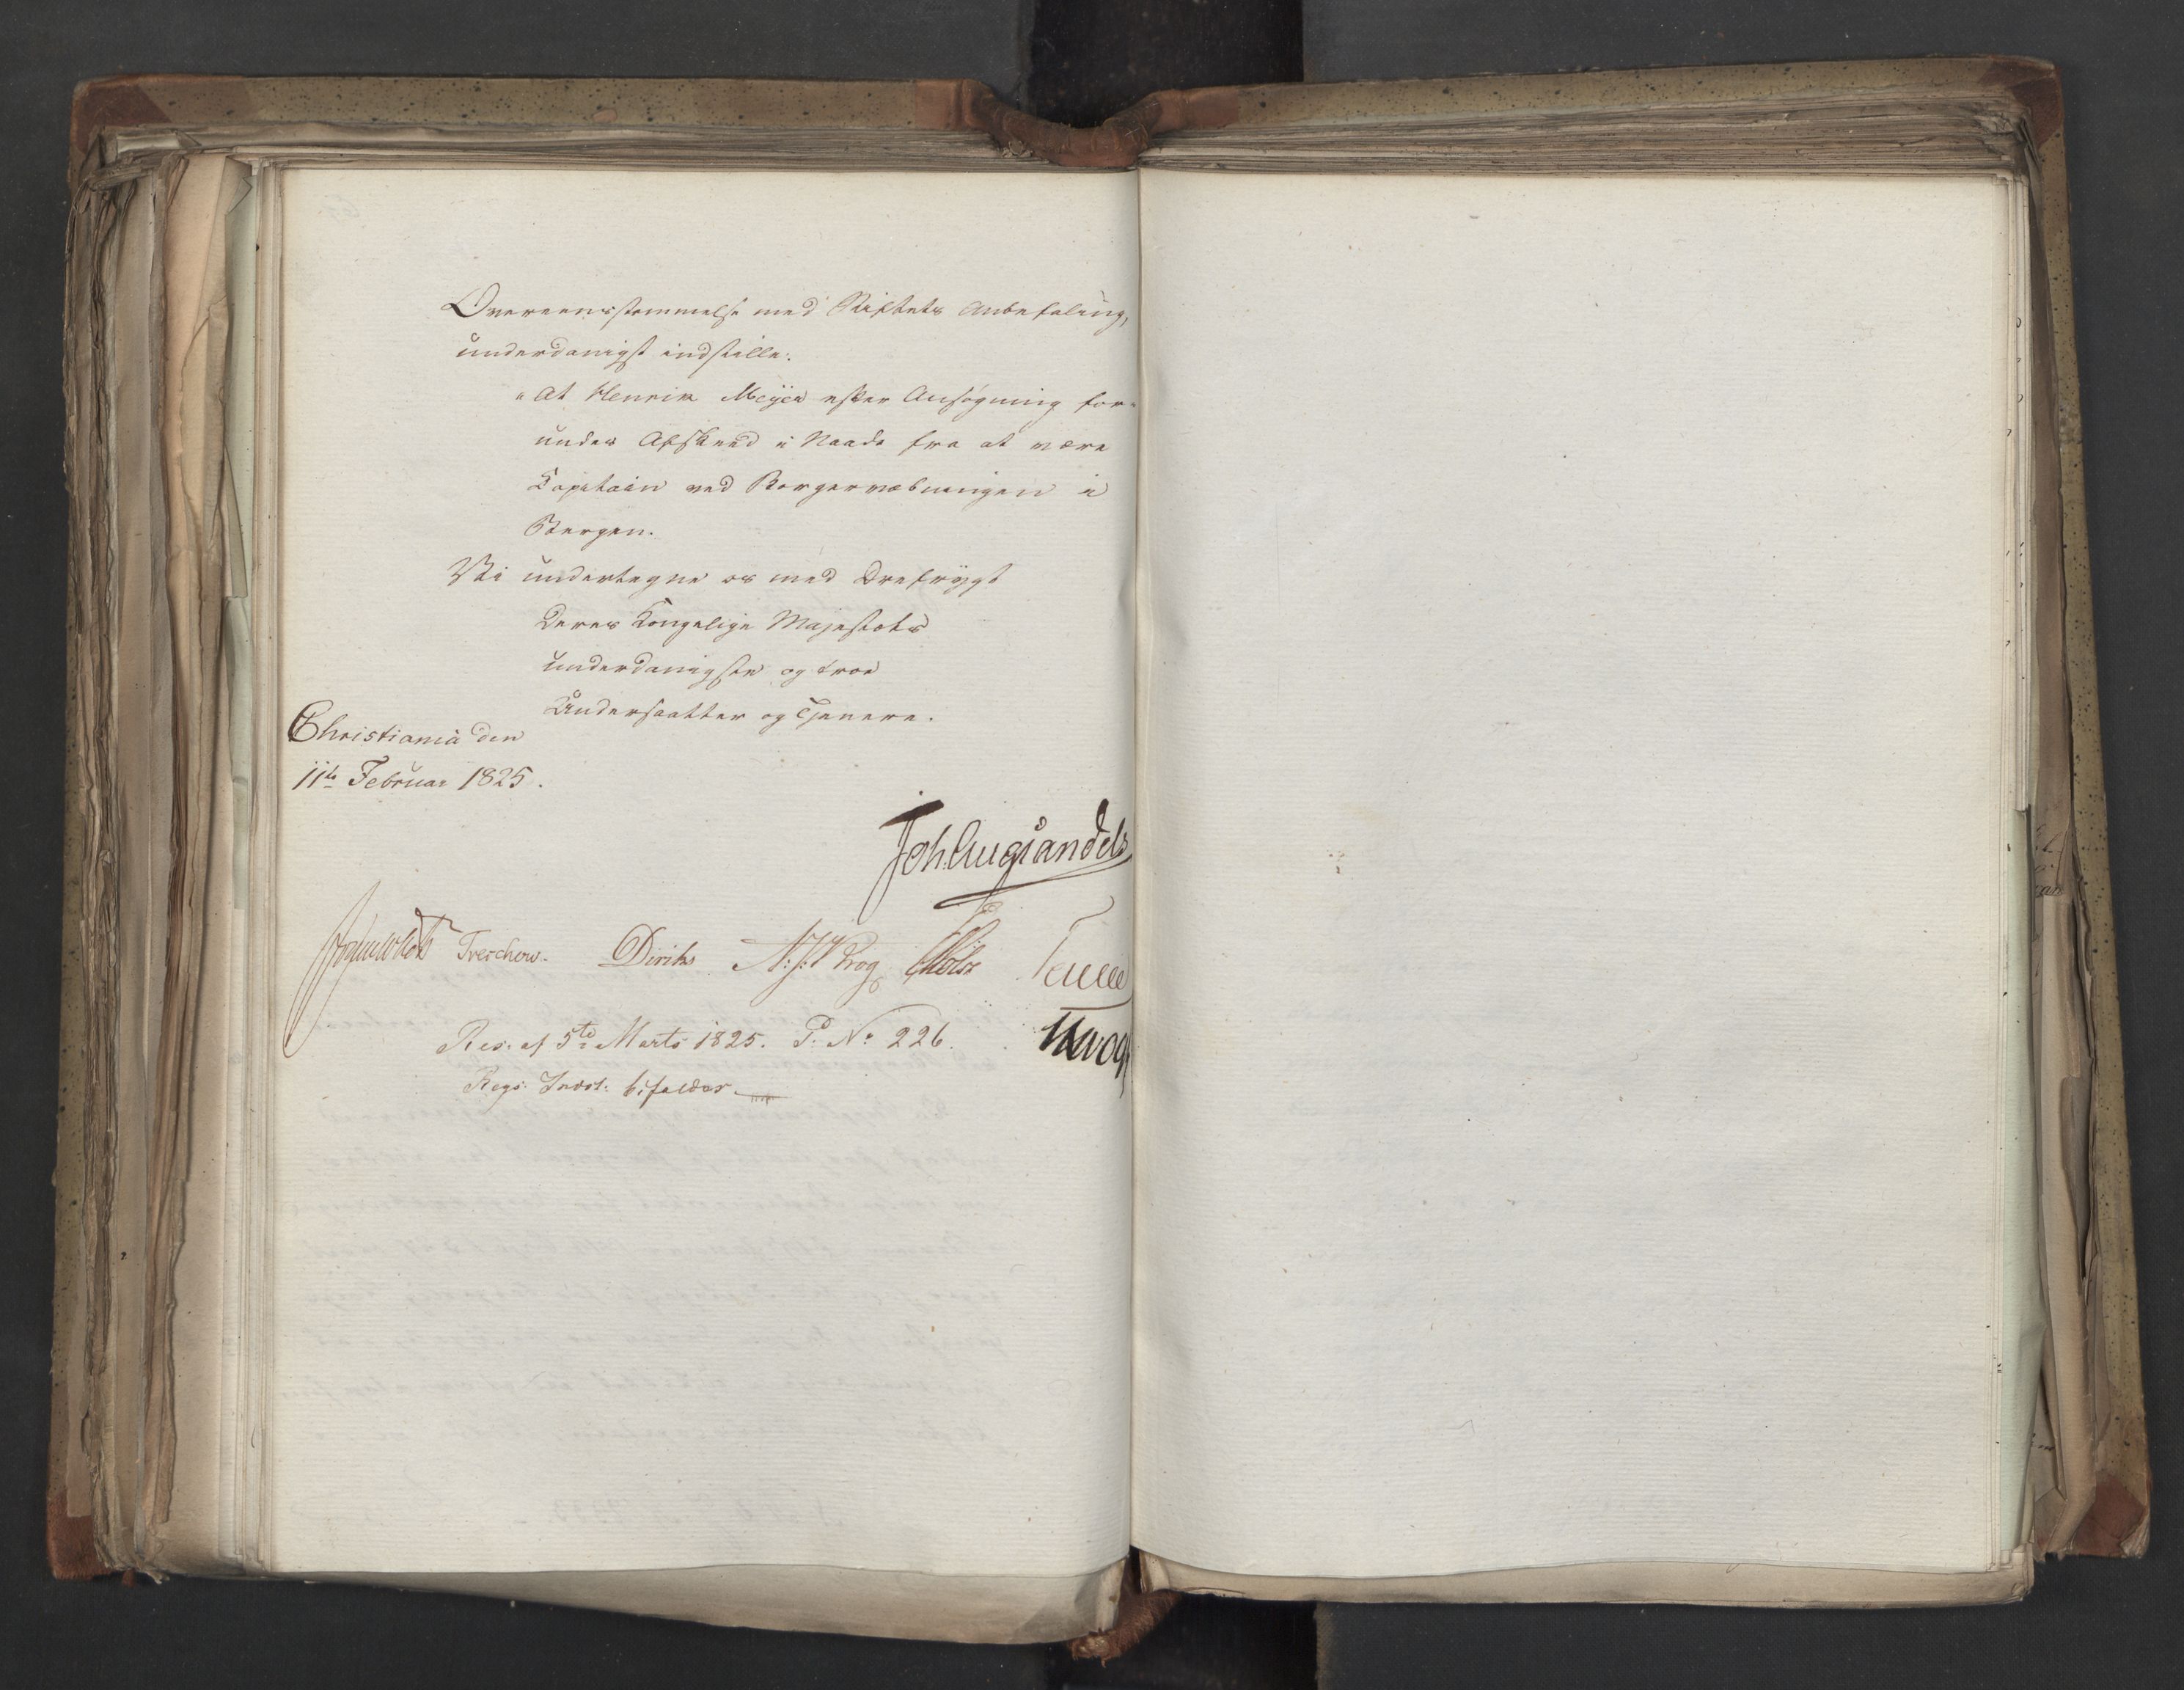 Overeensstemmelse med Stiftets Anbefaling,
underdanigst indstille:
"At Henrik Meyer efter Ansøgning for-
undes Afskeed i Naade fra at være
Capitain ved Borgervæbningen i
Bergen.
Vi undertegne os med Drefrygt
Deres Kongelige Majestæts
underdanigste og troe
Undersaatter og Tjenere.
Christiania den
11te Februar 1825.
Joh. Aug Sandels
Treschow. Diriks Krog Holst
Res. af 5te Marts 1825. P. No 226.
Regs. Indst. bifaldes.